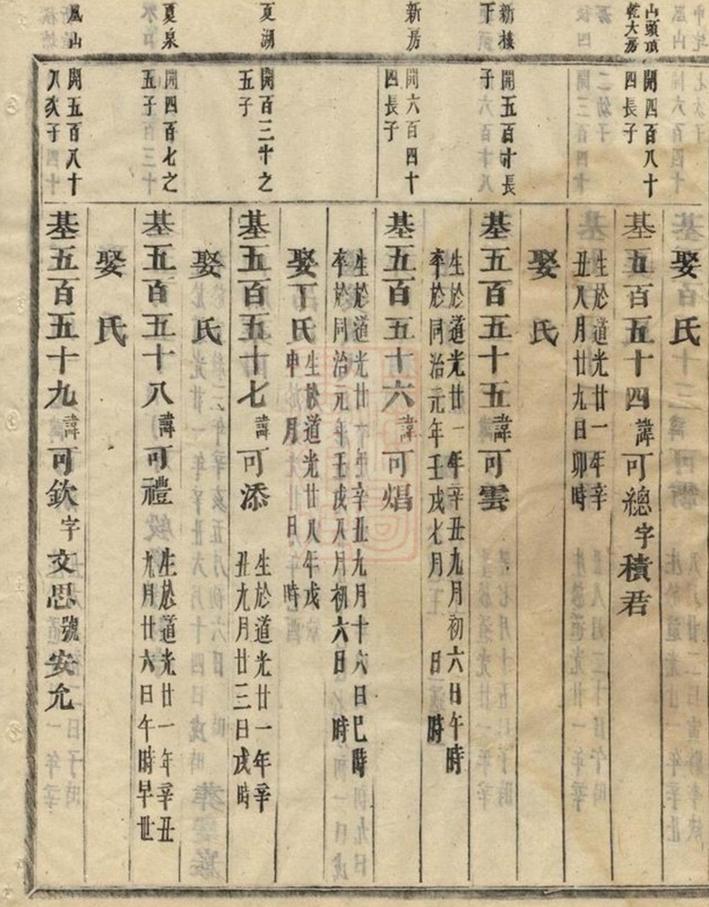 娶氏
山頭頂
乾大房
開四百八十
四長子
基五百五十四諱可總字積君
生於道光廿一年辛
丑八月廿九日卯時
娶氏
新樓
下
開五百十長
子
基五百五十五諱可雲
生於道光廿一年辛丑九月初六日午時
卒於同治元年壬戌七月 日 時
新房
開六百四十
四長子
基五百五十六諱可焻
生於道光廿一年辛丑九月十六日巳時
卒於同治元年壬戌八月初六日 時
娶丁氏
生於道光廿八年戊
申 月 日 時
夏湖
開百三十之
五子
基五百五十七諱可添
生於道光廿一年辛
丑九月廿三日戌時
娶氏
夏泉
開四百七之
五子
基五百五十八諱可禮
生於道光廿一年辛丑
九月廿六日午時早世
娶氏
鳳山
開五百八十
八次子
基五百五十九諱可欽字文思號安允